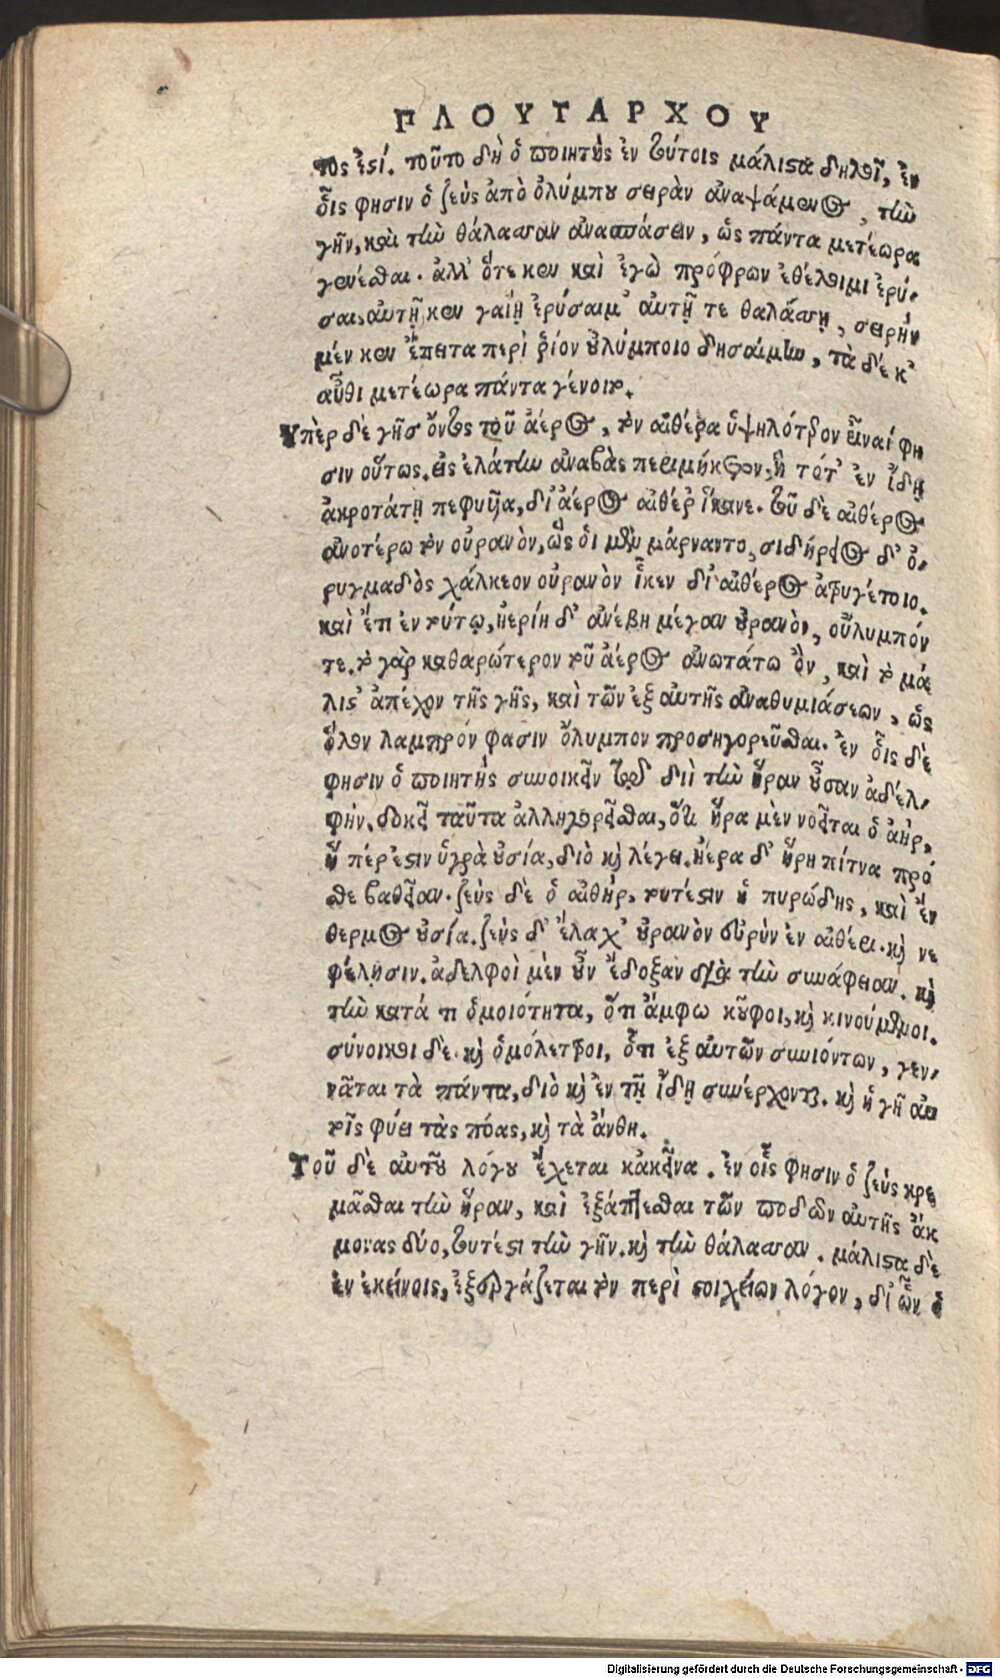 ΠΛΟΥΤΑΡΧΟΥ
τος ἐστί. τοῦτο δὴ ὁ ποιητὴς ἐν τούτοις μάλιστα δηλοῖ, ἐν
οἷς φησιν ὁ ζεὺς ἀπὸ ὀλύμπου σειρὰν ἀναψάμενος, τὴν
γῆν, καὶ τὴν θάλασσαν ἀνασπάσειν, ὡς πάντα μετέωρα
γενέσθαι. ἀλλ' ὅτε κεν καὶ ἐγὼ πρόφρων ἐθέλοιμι ἐρύ-
σαι, αὐτῇ κεν γαίῃ ἐρύσαιμ' αὐτῇ τε θαλάσσῃ, σειρὴν
μέν κεν ἔπειτα περὶ ῥίον οὐλύμποιο δησαίμην, τὰ δέ κ'
αὖθι μετέωρα πάντα γένοιτο.
Υπὲρ δὲ γῆς ὄντος τοῦ ἀέρος, τὸν αἰθέρα ὑψηλότερον εἶναί φη
σιν οὕτως. εἰς ἐλάτην ἀναβὰς περιμήκετον, ἣ τότ' ἐν ἴδῃ
ἀκροτάτῃ πεφυῖα, δι' ἀέρος αἰθέρ' ἵκανε. τοῦ δὲ αἰθέρος
ἀνοτέρω τὸν οὐρανὸν, ὣς οἱ μὲν μάρναντο, σιδήρειος δ' ὀ-
ρυγμαδὸς χάλκεον οὐρανὸν ἷκεν δι' αἰθέρος ἀτρυγέτοιο.
καὶ ἔτι ἐν τούτῳ, ἠερίη δ' ἀνέβη μέγαν οὐρανὸν, οὔλυμπόν
τε. τὸ γὰρ καθαρώτερον τοῦ ἀέρος ἀνωτάτω ὂν, καὶ τὸ μά
λιστ' ἀπέχον τῆς γῆς, καὶ τῶν ἐξ αὐτῆς ἀναθυμιάσεων, ὡς
ὅλον λαμπρόν φασιν ὄλυμπον προσηγορεῦσθαι. ἐν οἷς δὲ
φησιν ὁ ποιητὴς συνοικεῖν τῷ διὶ τὴν ἥραν οὖσαν ἀδελ-
φήν. δοκεῖ ταῦτα ἀλληγορεῖσθαι, ὅτι ἥρα μὲν νοεῖται ὁ ἀὴρ,
ἥ πέρ ἐστιν ὑγρὰ οὐσία, διὸ καὶ λέγει. ἠέρα δ' ἥρη πίτνα πρό
σθε βαθεῖαν. ζεὺς δὲ ὁ αἰθὴρ, τουτέστιν ἡ πυρώδης, καὶ ἔν
θερμος οὐσία. ζεὺς δ' ἔλαχ' οὐρανὸν εὐρὺν ἐν αἰθέρι. καὶ νε
φέλῃσιν. ἀδελφοὶ μὲν οὖν ἔδοξαν διὰ τὴν συνάφειαν. καὶ
τὴν κατά τι ὁμοιότητα, ὅτι ἄμφω κοῦφοι, καὶ κινούμενοι.
σύνοικοι δὲ. καὶ ὁμόλεκτροι, ὅτι ἐξ αὐτῶν συνιόντων, γεν-
νᾶται τὰ πάντα, διὸ καὶ ἐν τῇ ἴδῃ συνέρχονται. καὶ ἡ γῆ αὐ
τοῖς φύει τὰς πόας, καὶ τὰ ἄνθη.
Τοῦ δὲ αὐτοῦ λόγου ἔχεται κἀκεῖνα. ἐν οἷς φησιν ὁ ζεὺς κρε
μᾶσθαι τὴν ἥραν, καὶ ἐξάπτεσθαι τῶν ποδῶν αὐτῆς ἄκ
μονας δύο, τουτέστι τὴν γῆν. καὶ τὴν θάλασσαν. μάλιστα δὲ
ἐν ἐκείνοις, ἐξεργάζεται τὸν περὶ στοιχείων λόγον, δι' ὧν ὁ
Digitalisierung gefördert durch die Deutsche Forschungsgemeinschaft - DFG